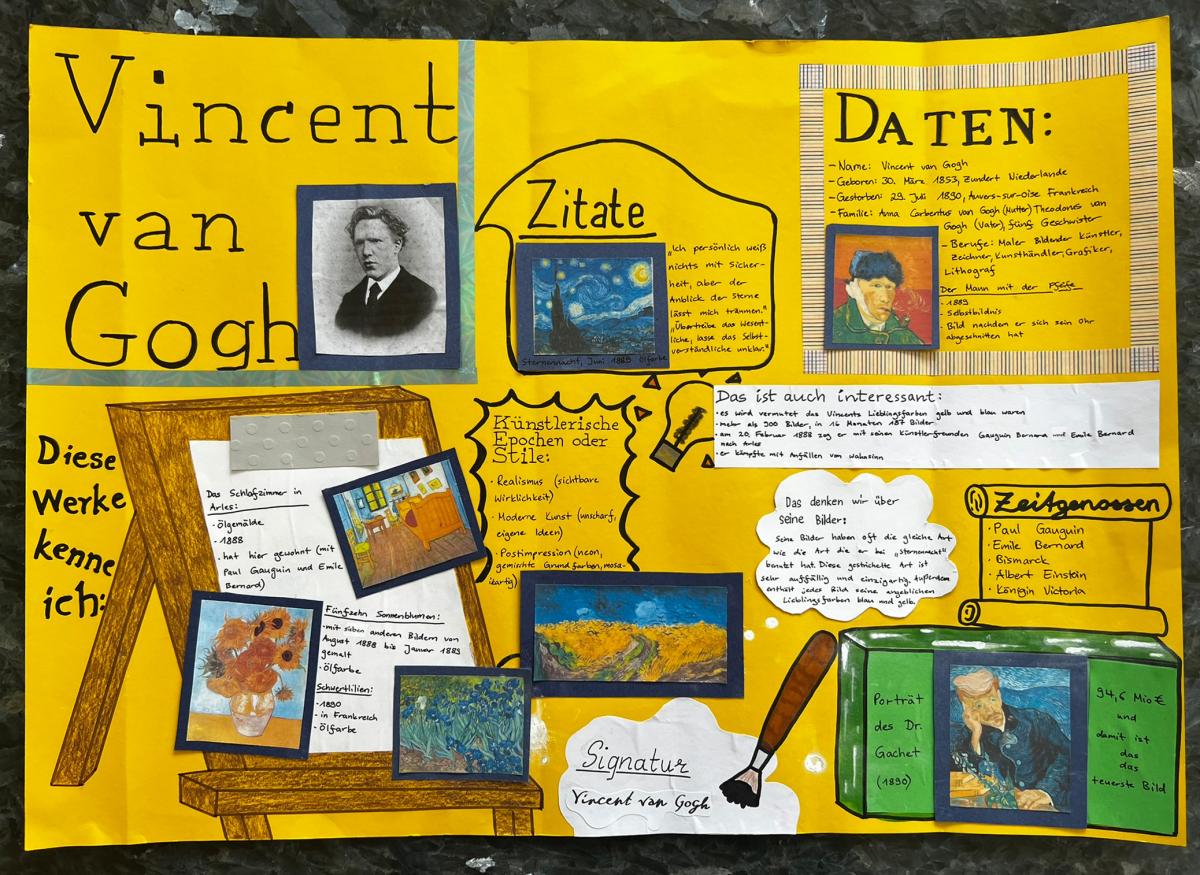 Vincent
van
Gogh
Zitate
„Ich persönlich weiß
nichts mit Sicher-
heit, aber der
Anblick der Sterne
lässt mich träumen."
„Übertreibe das Wesent-
liche, lasse das Selbst-
verständliche unklar."
Sternennacht, Juni 1889 Ölfarbe
DATEN:
- Name: Vincent van Gogh
- Geboren: 30. März 1853, Zundert Niederlande
- Gestorben: 29. Juli 1890, Auvers-sur-oise Frankreich
- Familie: Anna Carbentus van Gogh (Mutter) Theodorus van
Gogh (Vater), fünf Geschwister
- Berufe: Maler Bildender Künstler,
Zeichner, Kunsthändler, Grafiker,
Lithograf
Der Mann mit der Pfeife
- 1889
- Selbstbildnis
- Bild nachdem er sich sein Ohr
abgeschnitten hat
Das ist auch interessant:
• es wird vermutet das Vincents Lieblingsfarben gelb und blau waren
• mehr als 900 Bilder, in 16 Monaten 187 Bilder
• am 20. Februar 1888 zog er mit seinen Künstlerfreunden Gauguin Bernard und Emile Bernard
nach Arles
• er kämpfte mit Anfällen von Wahnsinn
Diese
Werke
kenne
ich:
Das Schlafzimmer in
Arles:
• Ölgemälde
• 1888
• hat hier gewohnt (mit
Paul Gauguin und Emile
Bernard)
Fünfzehn Sonnenblumen:
• mit sieben anderen Bildern von
August 1888 bis Januar 1889
gemalt
• Ölfarbe
Schwertlilien:
• 1890
• in Frankreich
• Ölfarbe
Künstlerische
Epochen oder
Stile:
• Realismus (sichtbare
Wirklichkeit)
• Moderne Kunst (unscharf,
eigene Ideen)
• Postimpression (neon,
gemischte Grundfarben, mosa-
ikartig)
Das denken wir über
seine Bilder:
Seine Bilder haben oft die gleiche Art
wie die Art die er bei „sternennacht"
benutzt hat. Diese gestrichelte Art ist
sehr auffällig und einzigartig. Außerdem
enthält jedes Bild seine angeblichen
Lieblingsfarben blau und gelb.
Zeitgenossen
• Paul Gauguin
• Emile Bernard
• Bismarck
• Albert Einstein
• Königin Victoria
Signatur
Vincent van Gogh
Porträt
des Dr.
Gachet
(1890)
94,6 Mio €
und
damit ist
das
das
teuerste Bild